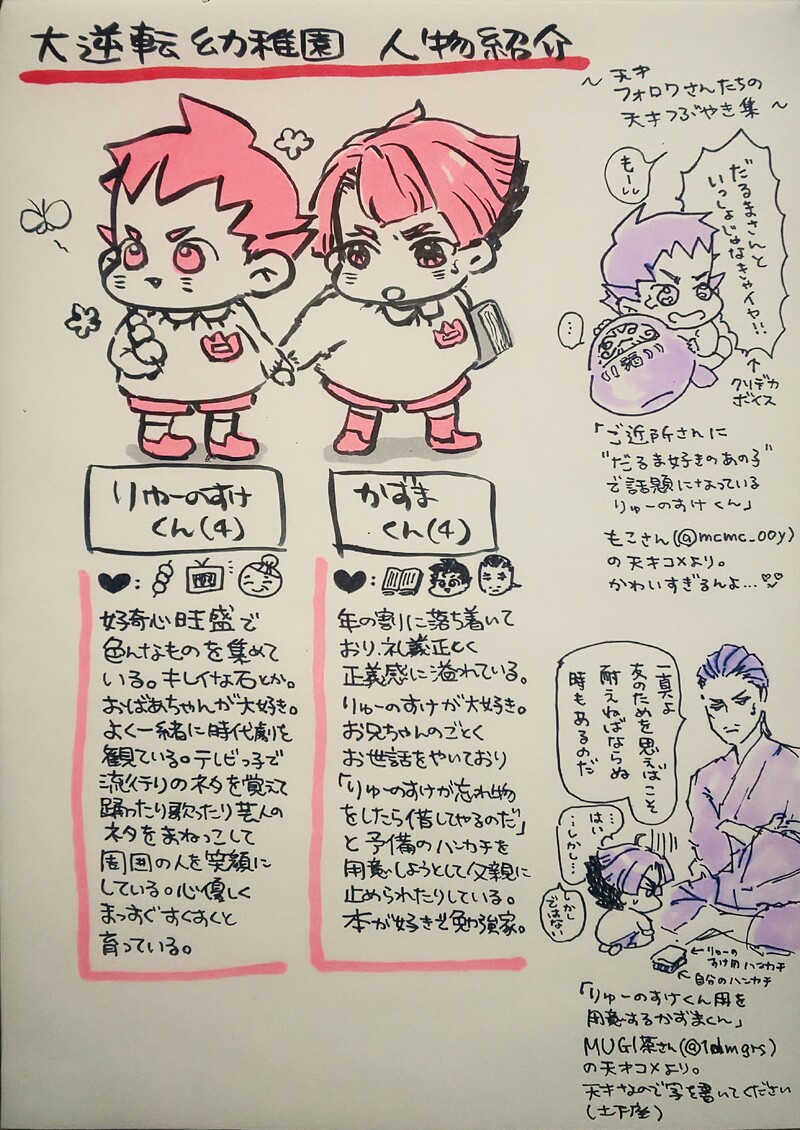 大逆転幼稚園 人物紹介
りゅーのすけ
くん(4)
♥:
好奇心旺盛で
色んなものを集めて
いる。キレイな石とか。
おばあちゃんが大好き。
よく一緒に時代劇を
観ている。テレビっ子で
流行りのネタを覚えて
踊ったり歌ったり芸人の
ネタをまねっこして
周囲の人を笑顔に
している。心優しく
まっすぐすくすくと
育っている。
かずま
くん(4)
♥:
年の割に落ち着いて
おり、礼義正しく
正義感に溢れている。
りゅーのすけが大好き。
お兄ちゃんのごとく
お世話をやいており
「りゅーのすけが忘れ物
をしたら借してやるのだ」
と予備のハンカチを
用意しようとして父親に
止められたりしている。
本が好きで勉強家。
〜天才
フォロワさんたちの
天才つぶやき集〜
もーッ
だるまさんと
いっしょじゃなきゃイヤ!!
…
↑
クソデカ
ボイス
「ご近所さんに
"だるま好きのあの子"
で話題になっている
りゅーのすけくん」
もこさん(@mcmc_00y)
の天才コメより。
かわいすぎるんよ…♡♡
一真よ
友のためを思えばこそ
耐えねばならぬ
時もあるのだ
はい…
…しかし…
しかし
ではない
←りゅーの
すけ用ハンカチ
↖自分のハンカチ
「りゅーのすけくん用を
用意するかずまくん」
MUGI茶さん(@1dmgrs)
の天才コメより。
天才なので字を書いてください
(土下座)